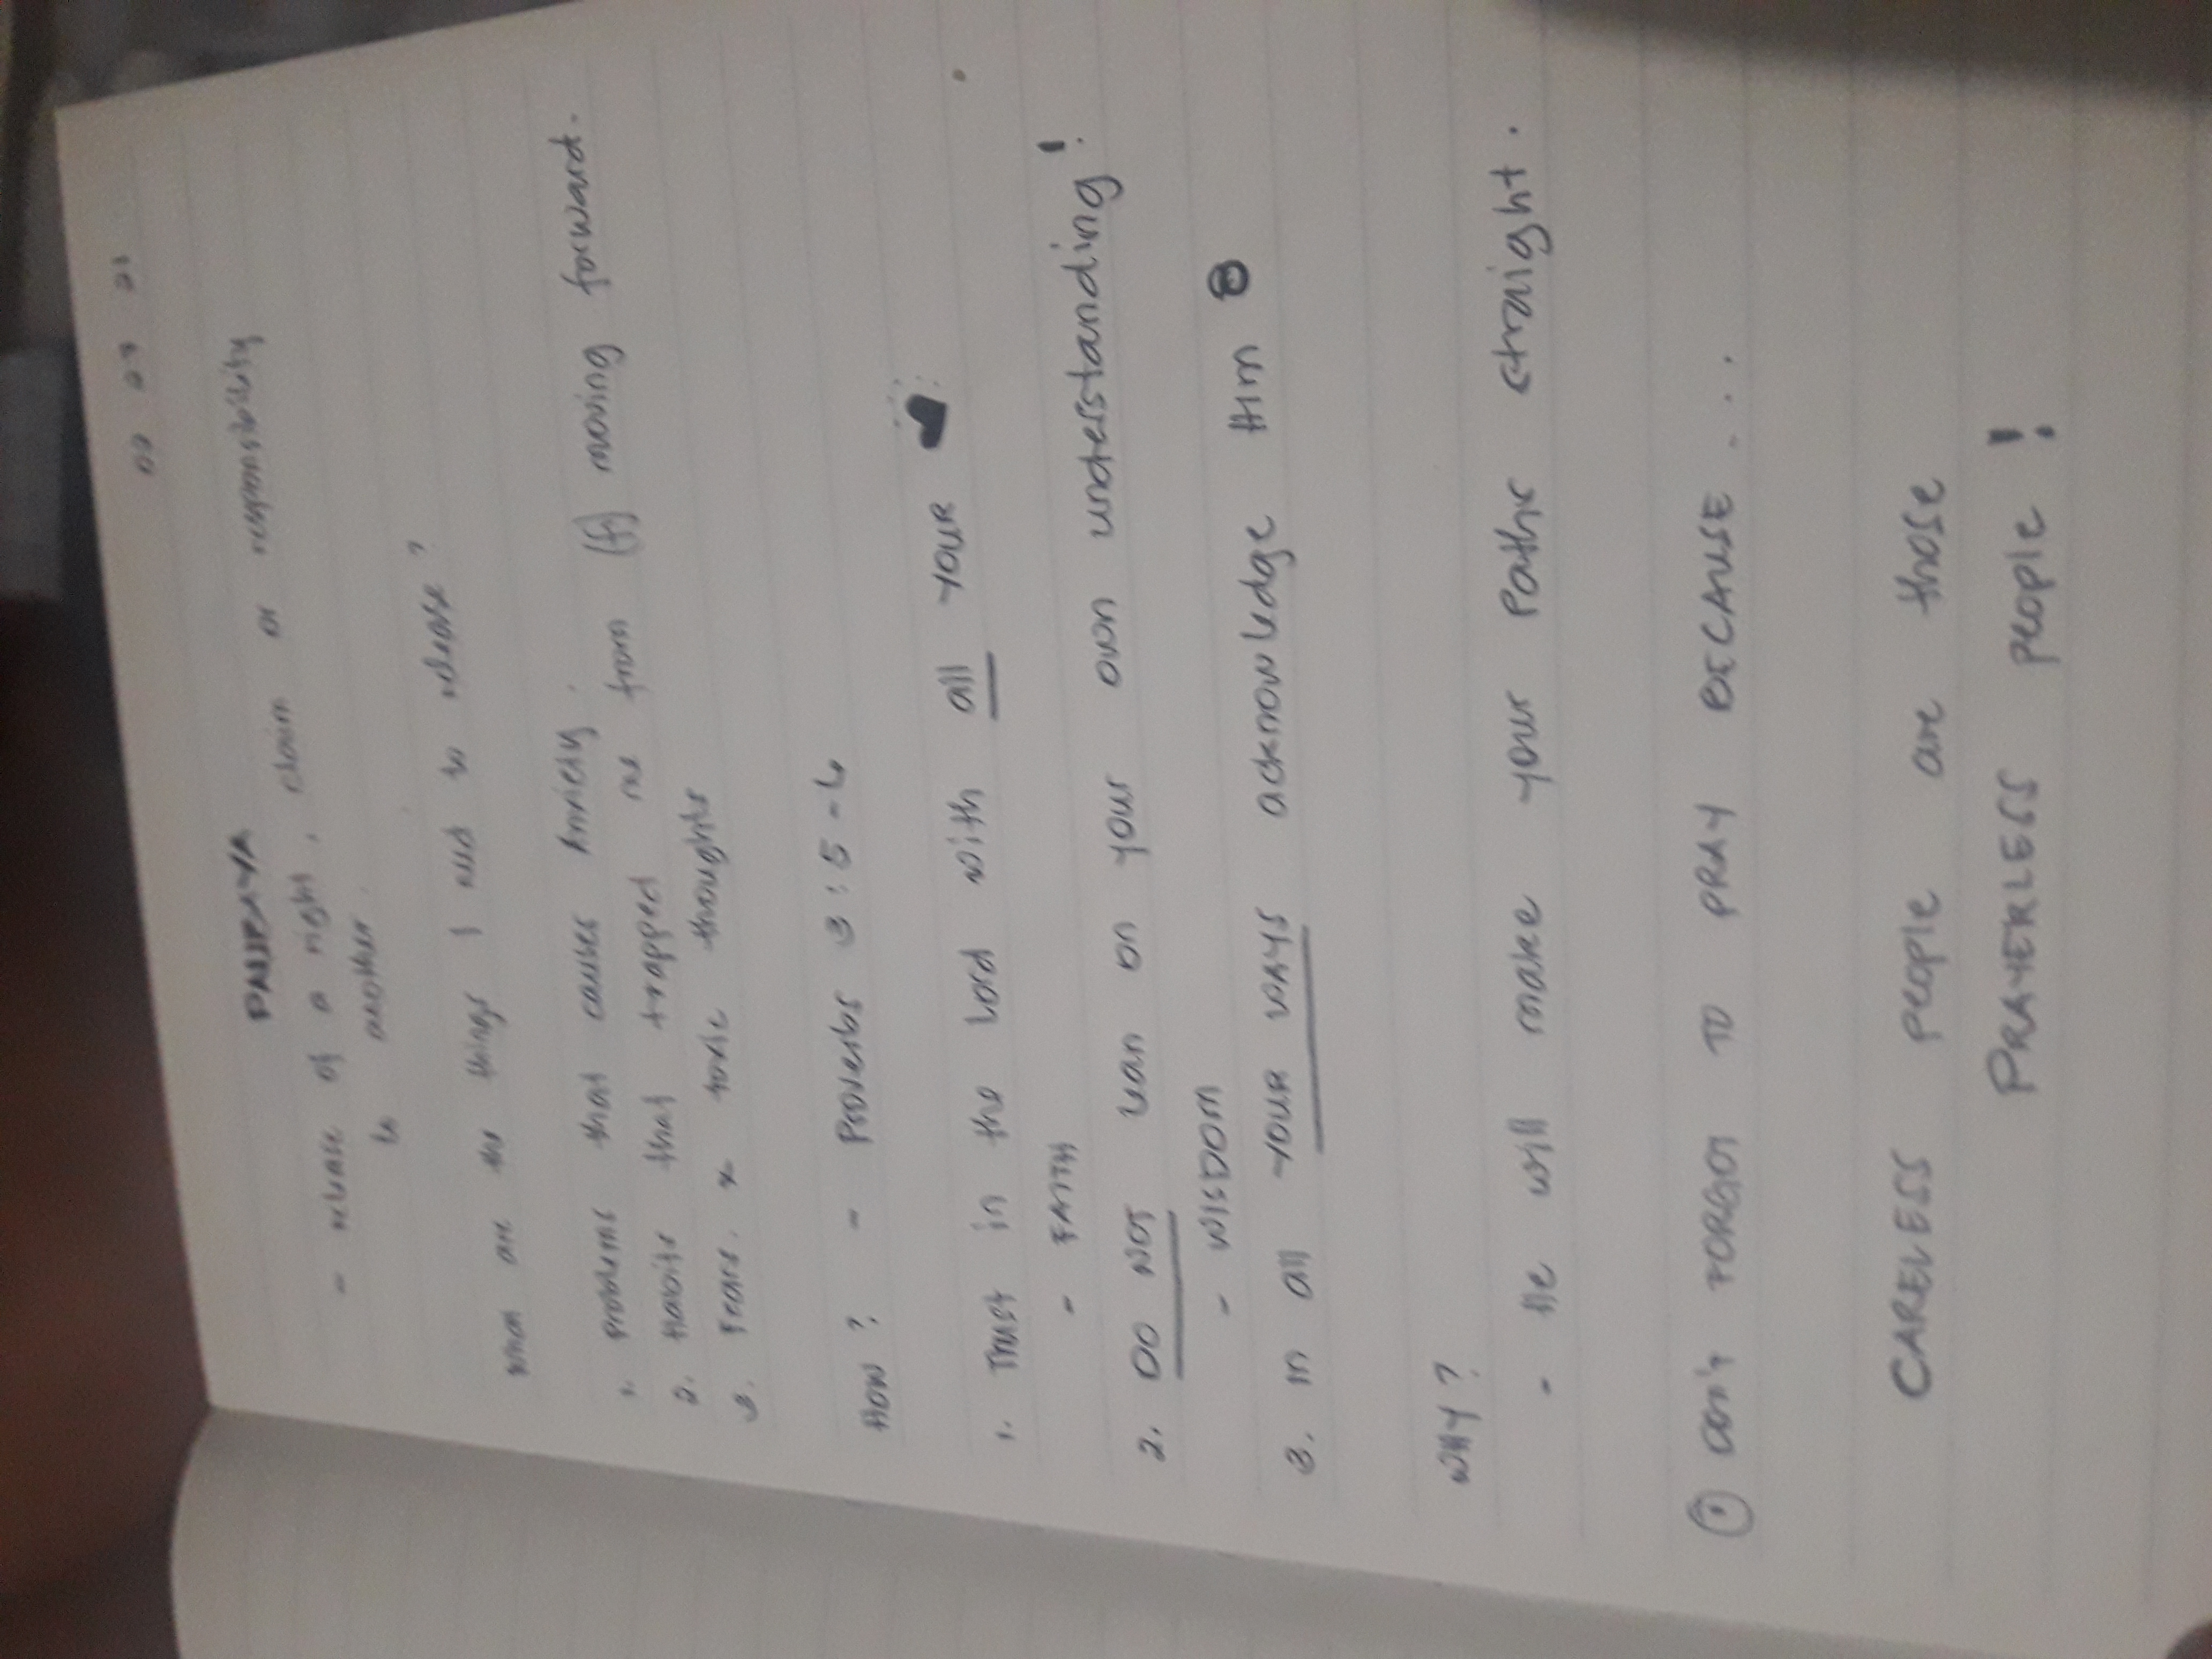 03 07 21
PAUBAYA
- release of a right, claim or responsibility
to another.
What are the things I need to release?
1. Problems that causes Anxiety.
2. Habits that trapped me from (f) moving forward.
3. Fears. & toxic thoughts
How? - Proverbs 3:5-6
1. Trust in the Lord with all YOUR
- FAITH
2. DO NOT lean on your own understanding!
- WISDOM
3. In all YOUR WAYS acknowledge Him
WHY?
- He will make your Paths straight.
① Don't FORGOT TO PRAY BECAUSE....
CARELESS people are those
PRAYERLESS people!